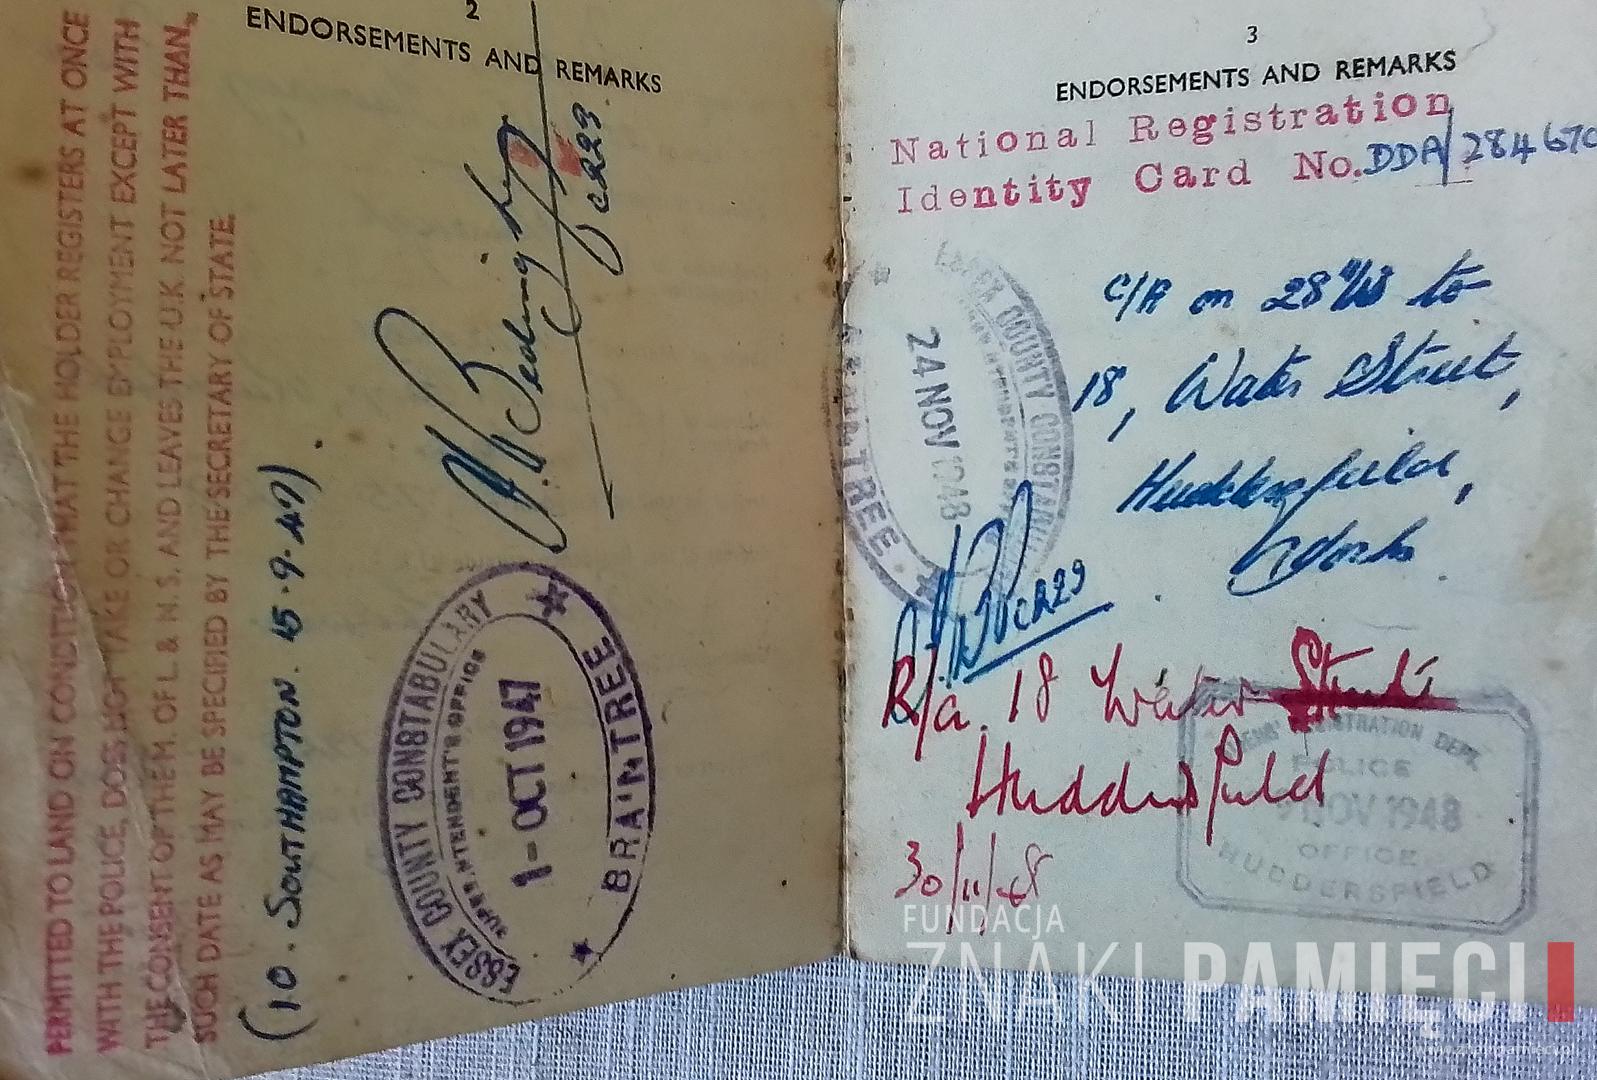 2
ENDORSEMENTS AND REMARKS
PERMITTED TO LAND ON CONDITION THAT THE HOLDER REGISTERS AT ONCE
WITH THE POLICE, DOES NOT TAKE OR CHANGE EMPLOYMENT EXCEPT WITH
THE CONSENT OF THE M. OF L. & N. S. AND LEAVES THE U.K. NOT LATER THAN,
SUCH DATE AS MAY BE SPECIFIED BY THE SECRETARY OF STATE.
(10. SOUTHAMPTON. 15.9.47).
PCR23
ESSEX COUNTY CONSTABULARY
SUPERINTENDENT'S OFFICE
1-OCT 1947
BRAINTREE
3
ENDORSEMENTS AND REMARKS
National Registration
Identity Card No. DDA/284670
ESSEX COUNTY CONSTABULARY
24 NOV 1948
TREE
C/A on to
18, Water Street,
Huddersfield,
Yorks
PCR23
R/a. 18 Water Street
Huddersfield
30/11/48
REGISTRATION DEPT.
POLICE
NOV 1948
OFFICE
HUDDERSFIELD
FUNDACJA
ZNAKI PAMIĘCI
www.znakipamieci.pl